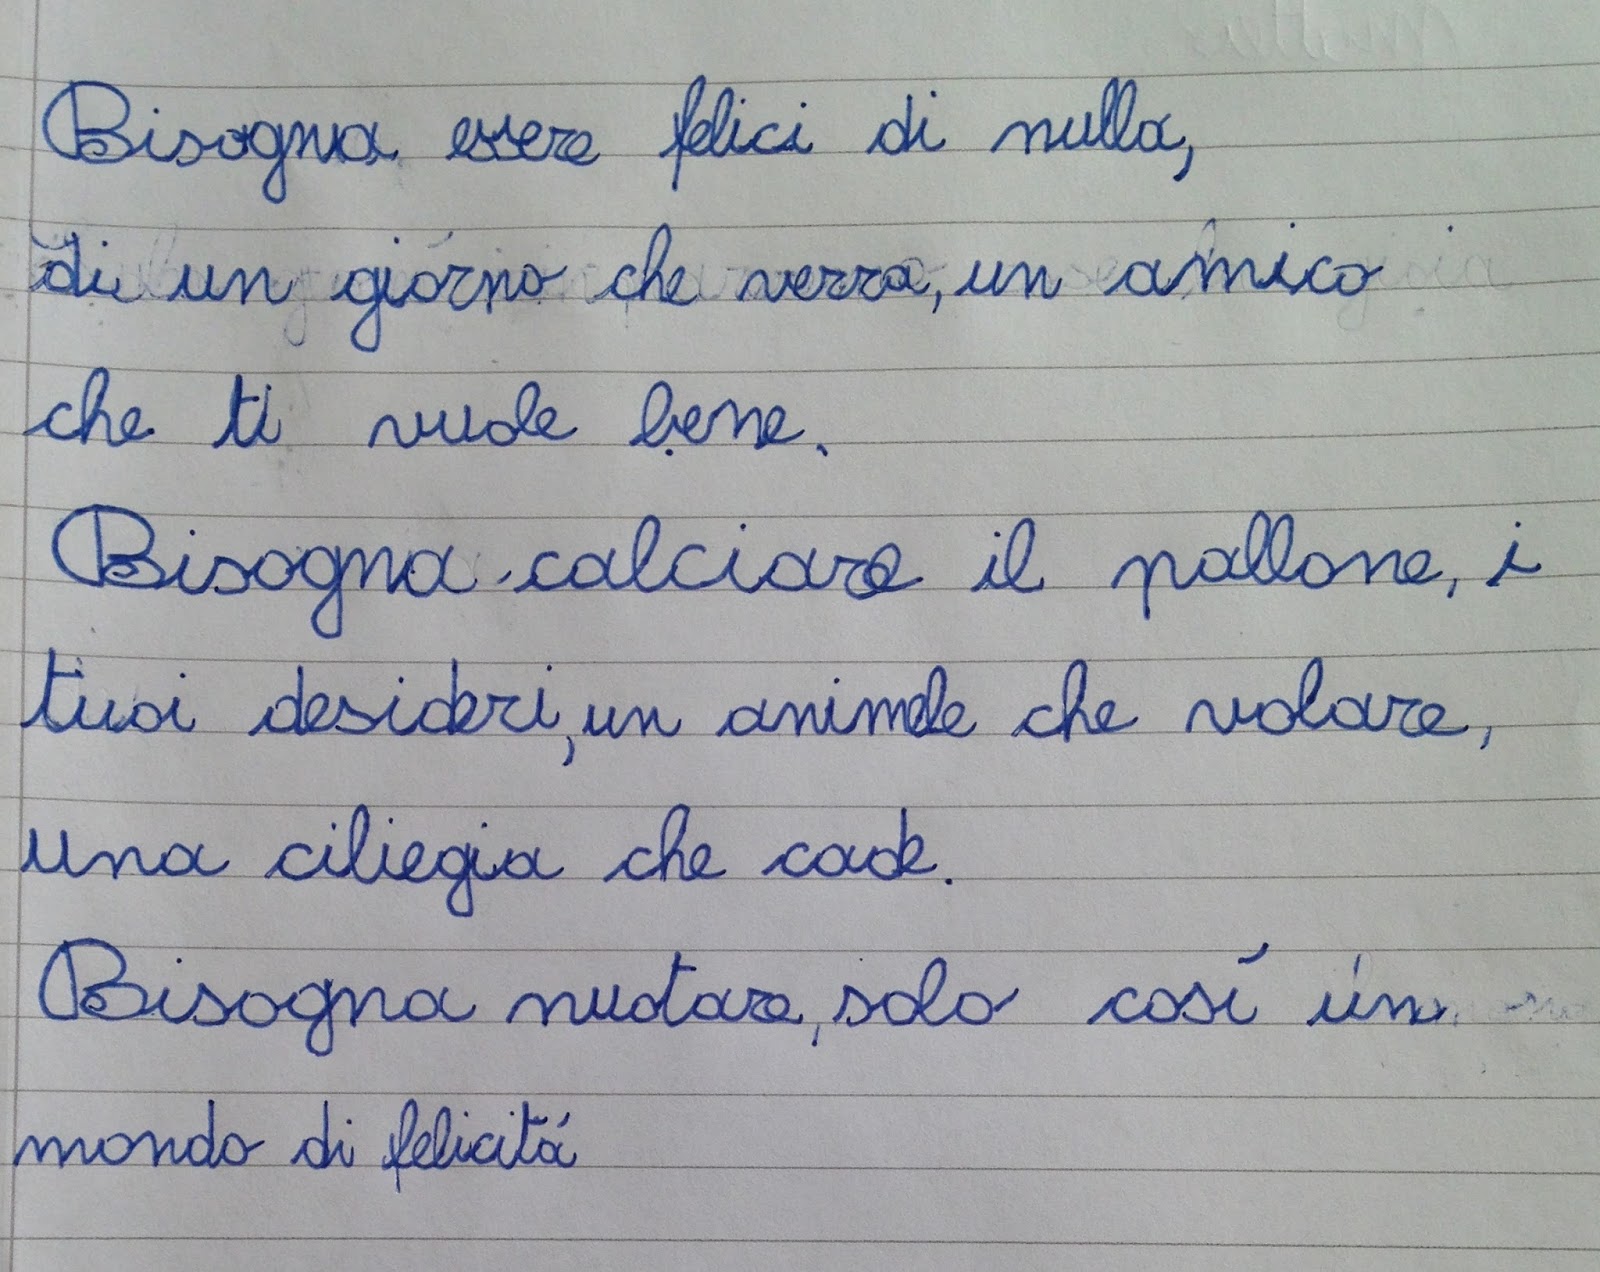 Bisogna essere felici di nulla,
di un giorno che verra, un amico
che ti vuole bene.
Bisogna calciare il pallone, i
tuoi desideri, un animale che volare,
una ciliegia che cade.
Bisogna nuotare, solo così un
mondo di felicità